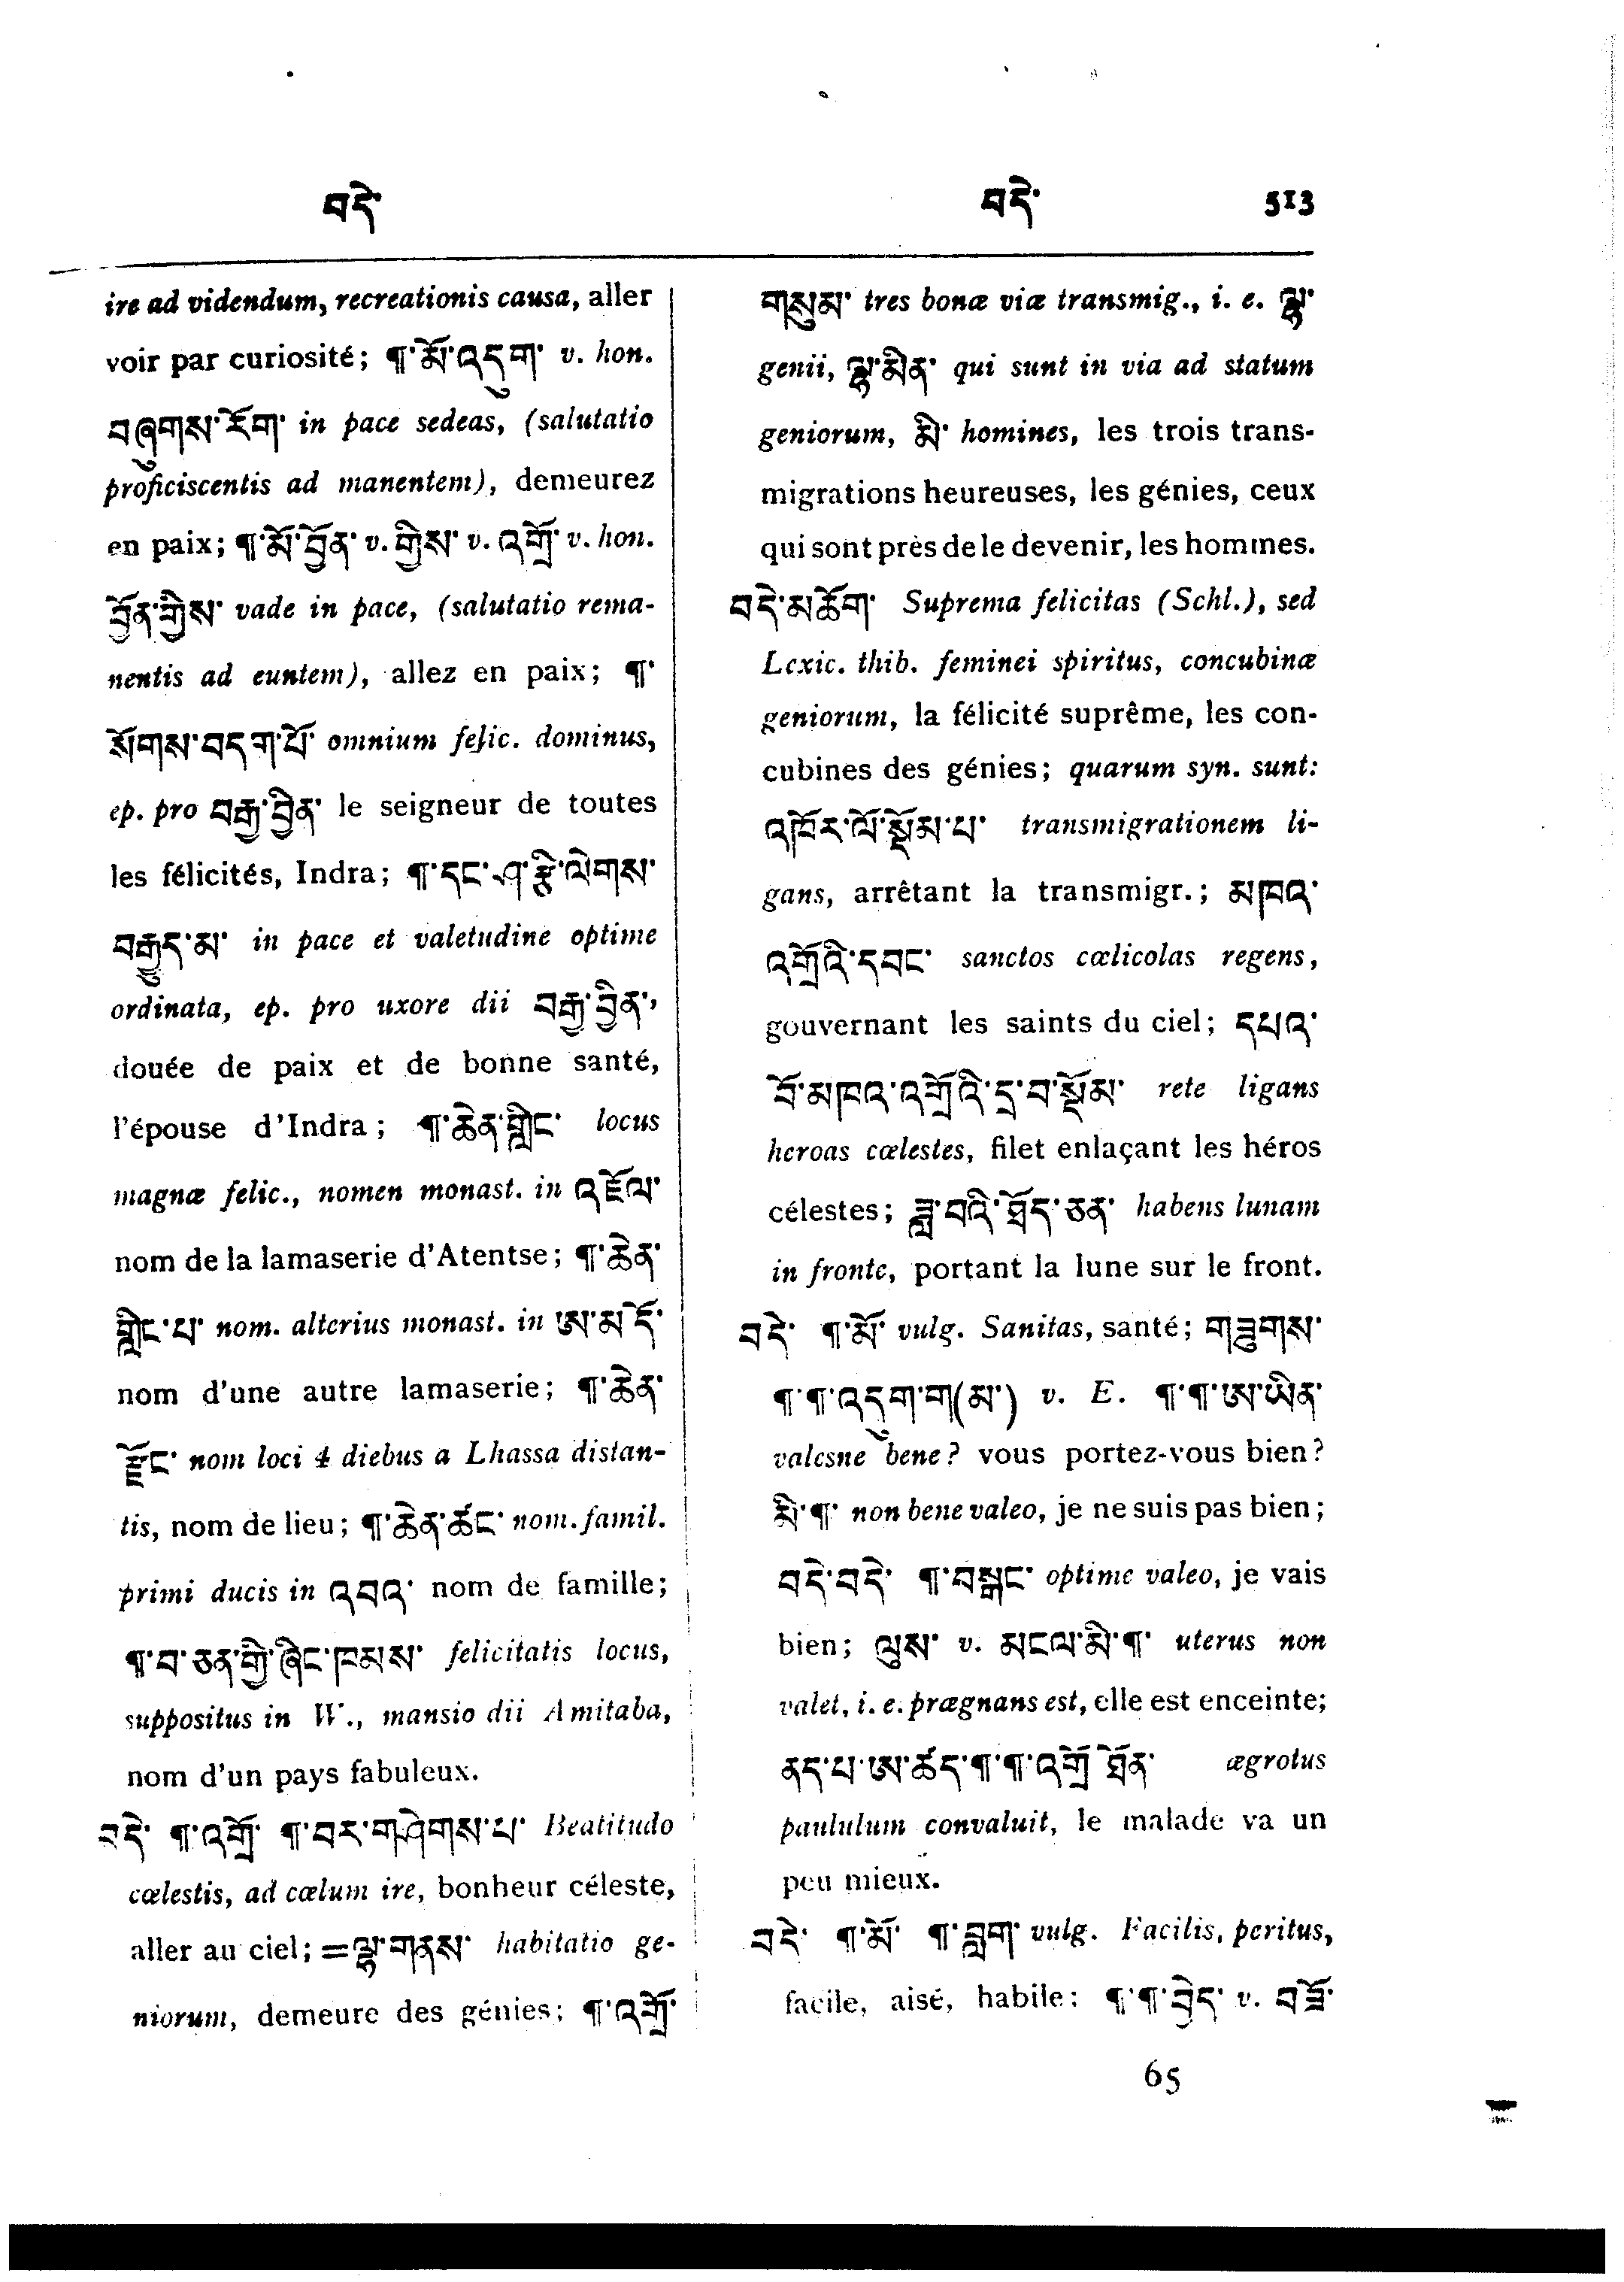 བདེ་
བདེ་ 513
ire ad videndum, recreationis causa, aller
voir par curiosité; ¶་མོ་འདུག་ v. hon.
བཞུགས་རོག་ in pace sedeas, (salutatio
proficiscentis ad manentem), demeurez
en paix; ¶་མོ་བྱོན་ v. གྱིས་ v. འགྲོ་ v. hon.
བྱོན་གྱིས་ vade in pace, (salutatio rema-
nentis ad euntem), allez en paix; ¶་
སོགས་བདག་པོ་ omnium felic. dominus,
ep. pro བརྒྱ་བྱིན་ le seigneur de toutes
les félicités, Indra; ¶་དང་ཤ་རྩི་ལེགས་
བརྒྱུད་མ་ in pace et valetudine optime
ordinata, ep. pro uxore dii བརྒྱ་བྱིན་,
douée de paix et de bonne santé,
l'épouse d'Indra; ¶་ཆེན་གླིང་ locus
magnæ felic., nomen monast. in འཇོལ་
nom de la lamaserie d'Atentse; ¶་ཆེན་
གླིང་པ་ nom. alterius monast. in ཨ་མདོ་
nom d'une autre lamaserie; ¶་ཆེན་
རྫོང་ nom loci 4 diebus a Lhassa distan-
tis, nom de lieu; ¶་ཆེན་ཚང་ nom. famil.
primi ducis in འབའ་ nom de famille;
¶་བ་ཅན་གྱི་ཞིང་ཁམས་ felicitatis locus,
suppositus in W., mansio dii Amitaba,
nom d'un pays fabuleux.
བདེ་ ¶་འགྲོ་ ¶་བར་གཤེགས་པ་ Beatitudo
cœlestis, ad cœlum ire, bonheur céleste,
aller au ciel; =ལྷ་གནས་ habitatio ge-
niorum, demeure des génies; ¶་འགྲོ་
གསུམ་ tres bonæ viæ transmig., i. e. ལྷ་
genii, ལྷ་མིན་ qui sunt in via ad statum
geniorum, མི་ homines, les trois trans-
migrations heureuses, les génies, ceux
qui sont près de le devenir, les hommes.
བདེ་མཆོག་ Suprema felicitas (Schl.), sed
Lexic. thib. feminei spiritus, concubinæ
geniorum, la félicité suprême, les con-
cubines des génies; quarum syn. sunt:
འཁོར་ལོ་སྡོམ་པ་ transmigrationem li-
gans, arrêtant la transmigr.; མཁའ་
འགྲོའི་དབང་ sanctos cœlicolas regens,
gouvernant les saints du ciel; དཔའ་
བོ་མཁའ་འགྲོའི་དྲ་བ་སྡོམ་ rete ligans
heroas cœlestes, filet enlaçant les héros
célestes; ཟླ་བའི་ཐོད་ཅན་ habens lunam
in fronte, portant la lune sur le front.
བདེ་ ¶་མོ་ vulg. Sanitas, santé; གཟུགས་
¶་¶་འདུག་ག(མ་) v. E. ¶་¶་ཨ་ཡིན་
valesne bene? vous portez-vous bien?
མི་¶་ non bene valeo, je ne suis pas bien;
བདེ་བདེ་ ¶་བསྒང་ optime valeo, je vais
bien; ལུས་ v. མངལ་མི་¶་ uterus non
valet, i. e. prægnans est, elle est enceinte;
ནད་པ་ཨ་ཚད་¶་¶་འགྲོ་ཐོན་ ægrotus
paululum convaluit, le malade va un
peu mieux.
བདེ་ ¶་མོ་ ¶་བླག་ vulg. Facilis, peritus,
facile, aisé, habile: ¶་¶་བྱེད་ v. བཟོ་
65